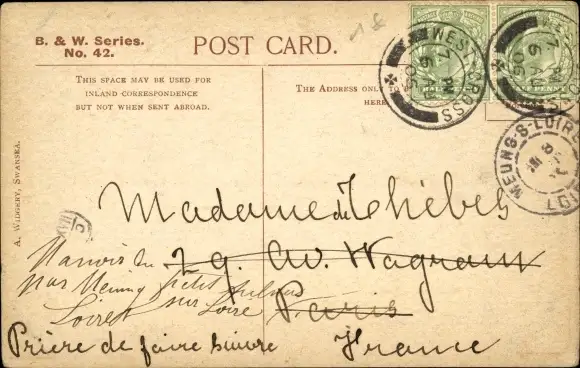 B. & W. Series.
No. 42.
POST CARD.
THIS SPACE MAY BE USED FOR
INLAND CORRESPONDENCE
BUT NOT WHEN SENT ABROAD.
THE ADDRESS ONLY TO
HERE
A. WIDGERY, SWANSEA.
WEST CROSS
7 PM
MEUNG-S-LOIRE
Madame de Thèbes
29. Av. Wagram
Paris
Manoir du Petit
par Meung sur Loire
Loiret
Prière de faire suivre
France